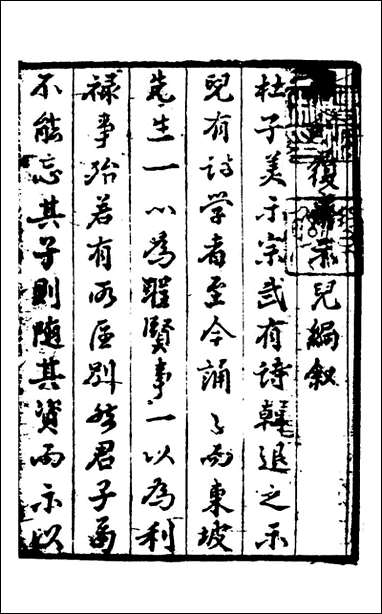 履齋示兒編叙
杜子美示宗武有詩韓退之示
兒有詩學者至今誦之而東坡
先生一以為聖賢事一以為利
祿事殆若有所區別然君子而
不能忘其子則隨其資而示以